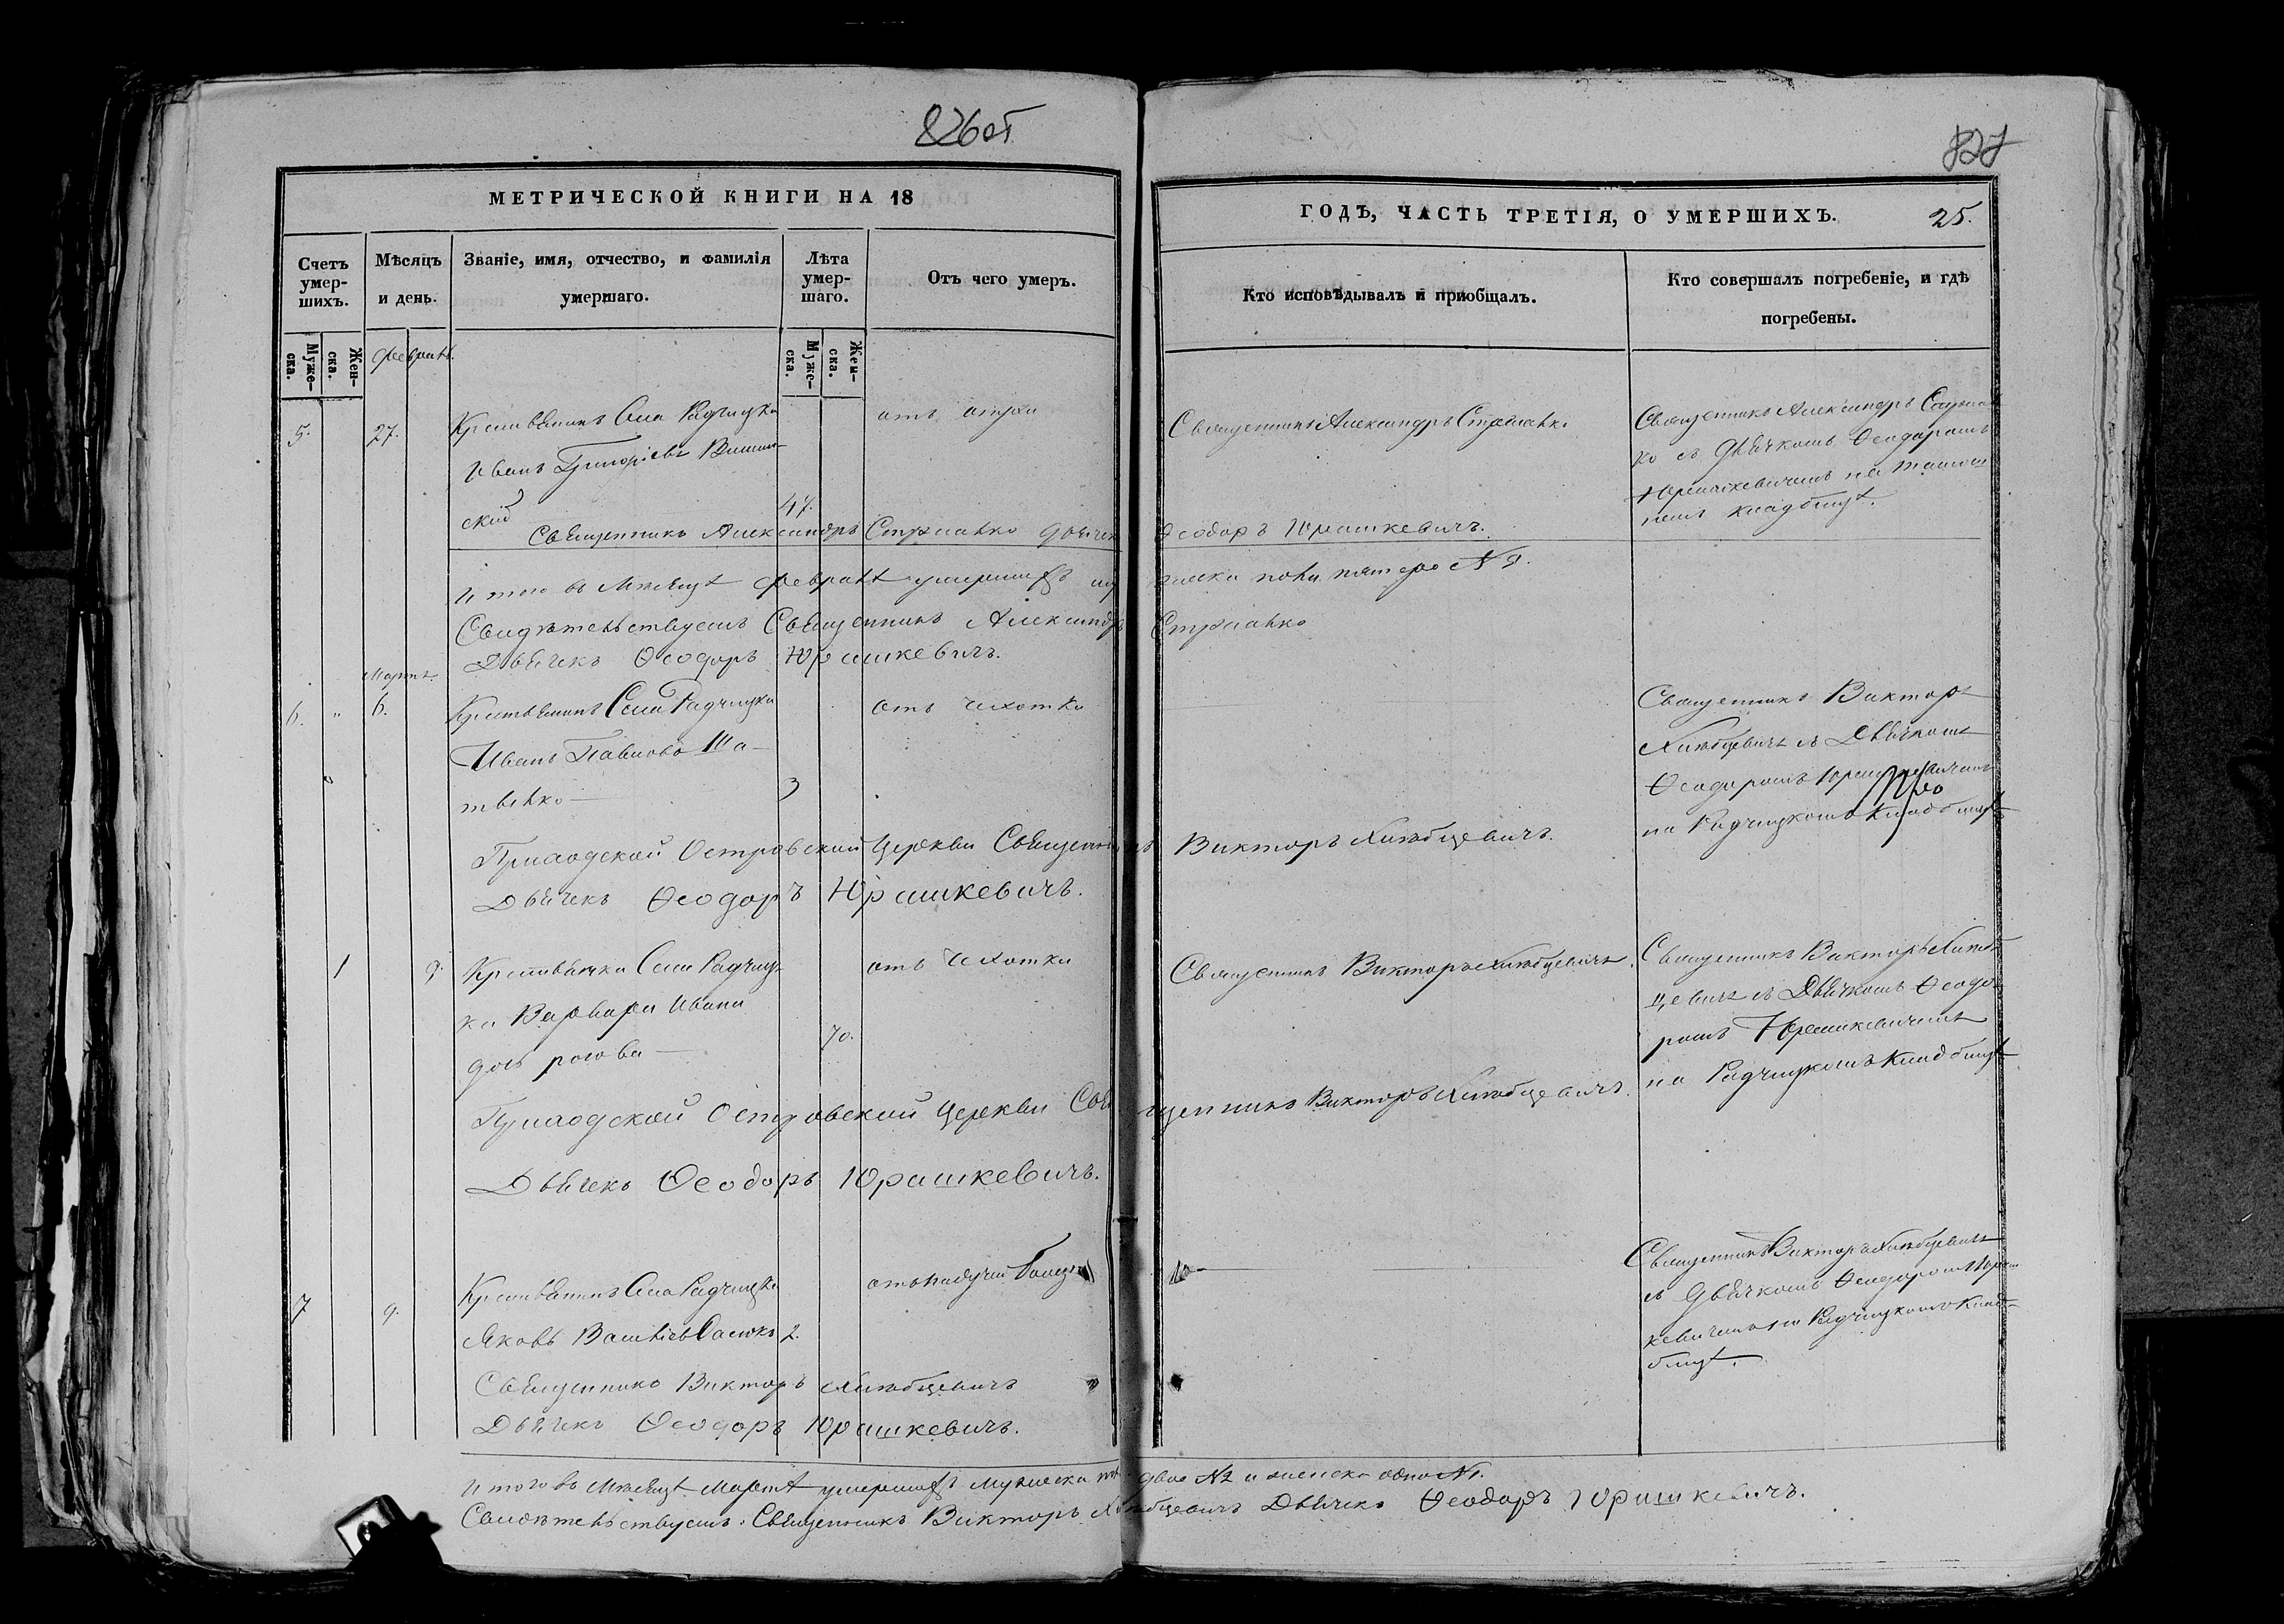 826об
827
МЕТРИЧЕСКОЙ КНИГИ НА 18
ГОДЪ, ЧАСТЬ ТРЕТІЯ, О УМЕРШИХЪ.
25.
Счетъ умер-шихъ.
Мѣсяцъ и день.
Званіе, имя, отчество, и фамилія умершаго.
Лѣта умер-шаго.
Отъ чего умеръ.
Кто исповѣдывалъ и приобщалъ.
Кто совершалъ погребеніе, и гдѣ погребены.
Муже-ска.
Жен-ска.
Муже-ска.
Жен-ска.
февраль
5.
27.
Крестьянинъ Села Радчицка
Иванъ Григоріевъ
ский
47.
отъ
Священникъ Александръ
Священникъ Александръ
ко съ Дьячкомъ Ѳеодоромъ
Юрашкевичемъ на
немъ кладбищѣ.
Священникъ Александръ
Ѳеодоръ Юрашкевичъ.
Итого въ Мѣсяцѣ февралѣ умершихъ
пола пятеро №
Свидѣтельствуемъ Священникъ Александръ
Дьячекъ Ѳеодоръ Юрашкевичъ.
Мартъ.
6.
"
6.
Крестьянинъ Села Радчицка
Иванъ Павловъ Ша-
тылько
3
отъ чахотки
Священникъ Викторъ
Хлѣбцевичъ съ Дьячкомъ
Ѳеодоромъ Юрашкевичемъ
на Радчицкомъ Кладбищѣ
Приходской Островской Церкви Священникъ Викторъ Хлѣбцевичъ.
Дьячекъ Ѳеодоръ Юрашкевичъ.
1
9.
Крестьянка Села Радчиц-
ка Варвара Ивана
дочь
70.
отъ чахотки
Священникъ Викторъ Хлѣбцевичъ.
Священникъ Викторъ Хлѣб-
цевичъ съ Дьячкомъ Ѳеодо-
ромъ Юрашкевичемъ
на Радчицкомъ Кладбищѣ
Приходской Островской Церкви Священникъ Викторъ Хлѣбцевичъ.
Дьячекъ Ѳеодоръ Юрашкевичъ.
7
9.
Крестьянинъ Села Радчицка
Яковъ
2.
отъ падучей болезни
Священникъ Викторъ Хлѣбцевичъ
съ Дьячкомъ Ѳеодоромъ Юраш-
кевичемъ на Радчицкомъ Клад-
бищѣ.
Священникъ Викторъ Хлѣбцевичъ
Дьячекъ Ѳеодоръ Юрашкевичъ.
Итого въ Мѣсяцѣ Мартѣ умершихъ мужеска пола двое №2 и женска одна №1.
Свидѣтельствуемъ: Священникъ Викторъ Хлѣбцевичъ Дьячекъ Ѳеодоръ Юрашкевичъ.